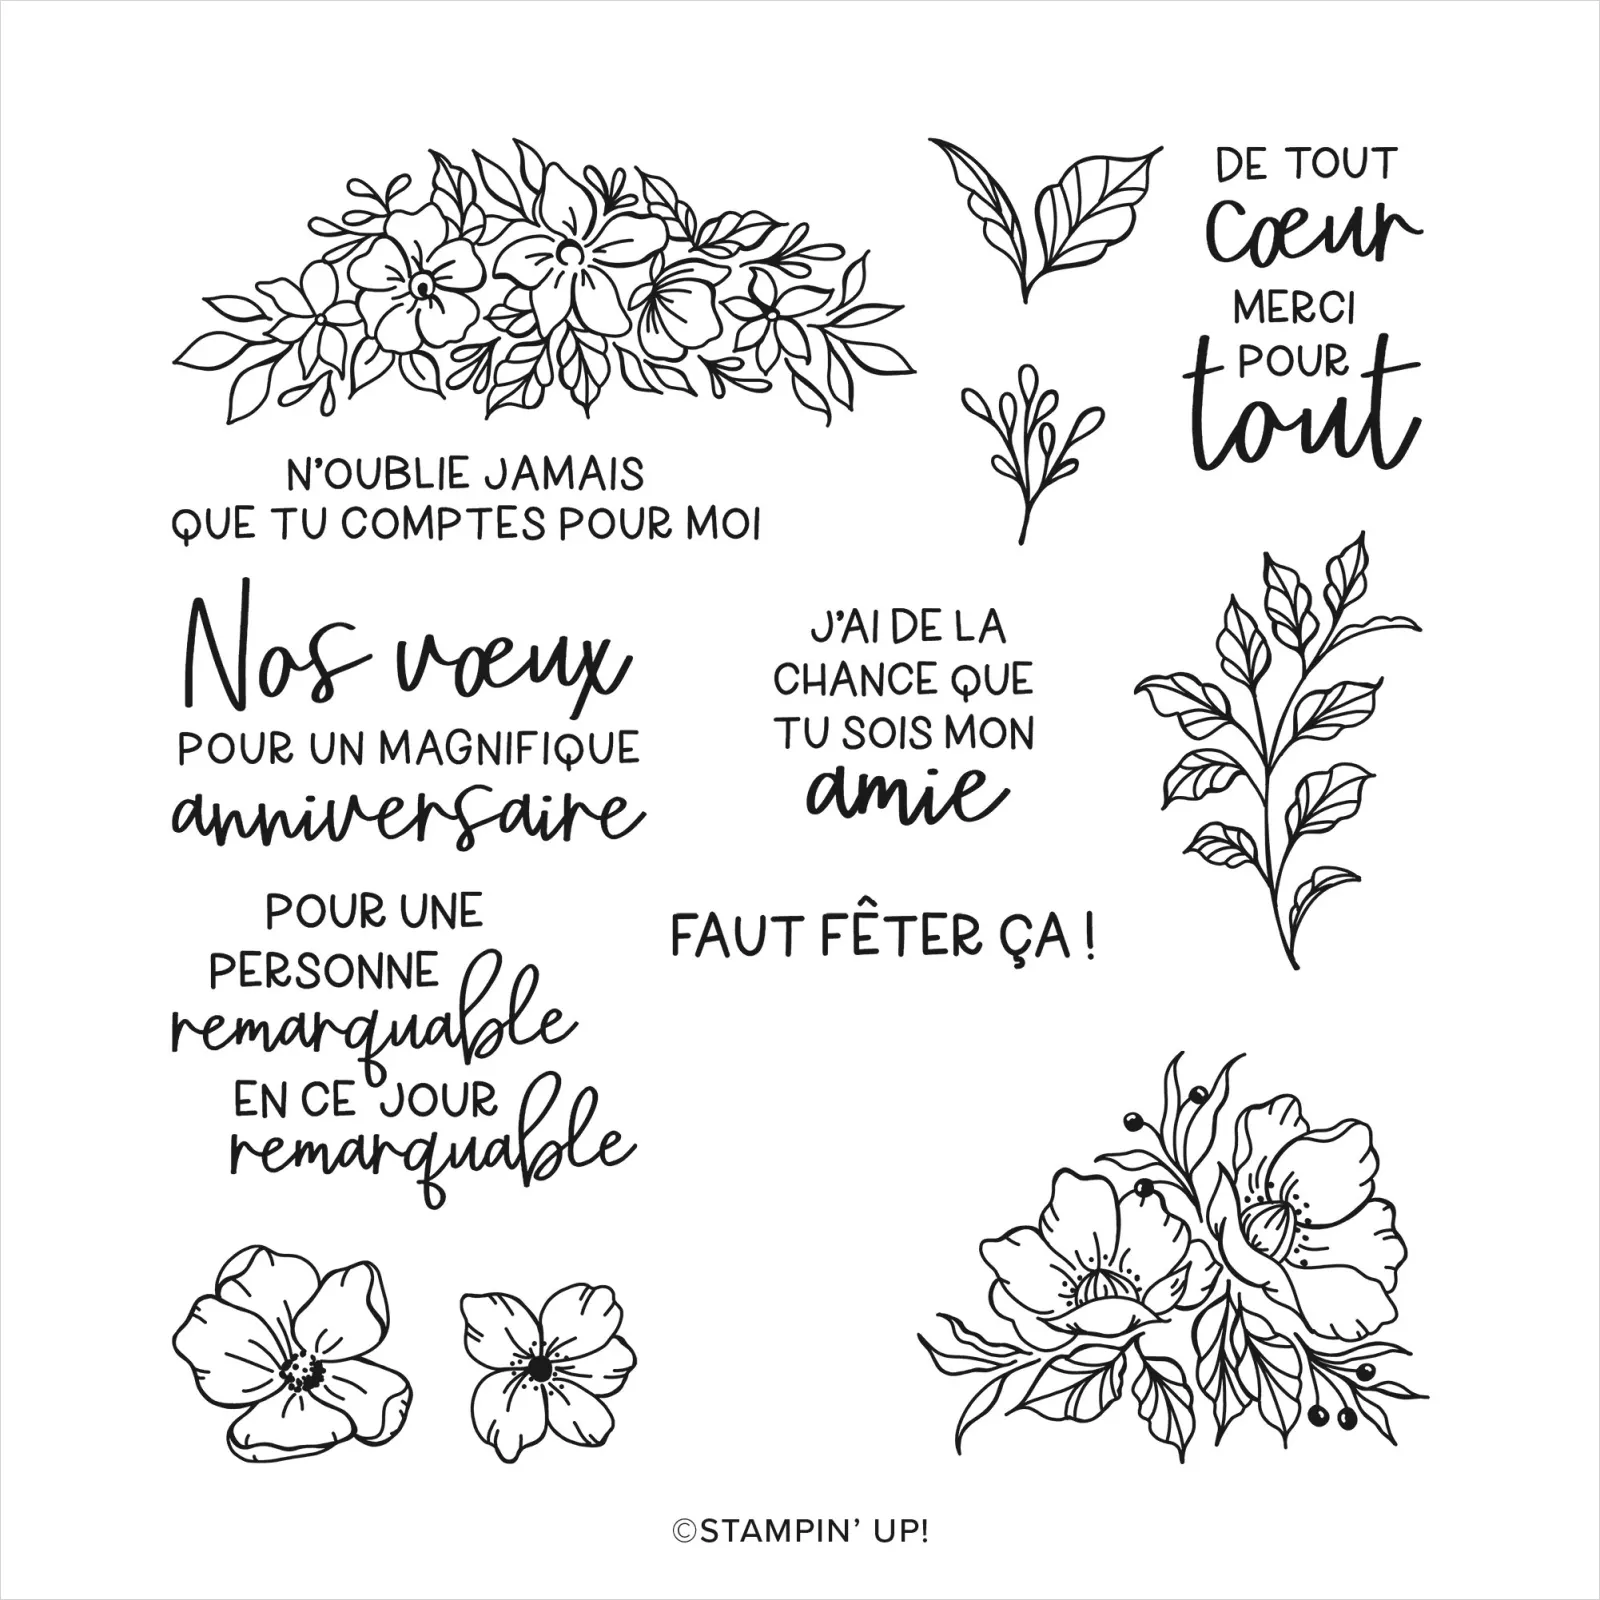 DE TOUT
cœur
MERCI
POUR
tout
N'OUBLIE JAMAIS
QUE TU COMPTES POUR MOI
Nos vœux
POUR UN MAGNIFIQUE
anniversaire
J'AI DE LA
CHANCE QUE
TU SOIS MON
amie
POUR UNE
PERSONNE
remarquable
EN CE JOUR
remarquable
FAUT FÊTER ÇA !
©STAMPIN' UP!